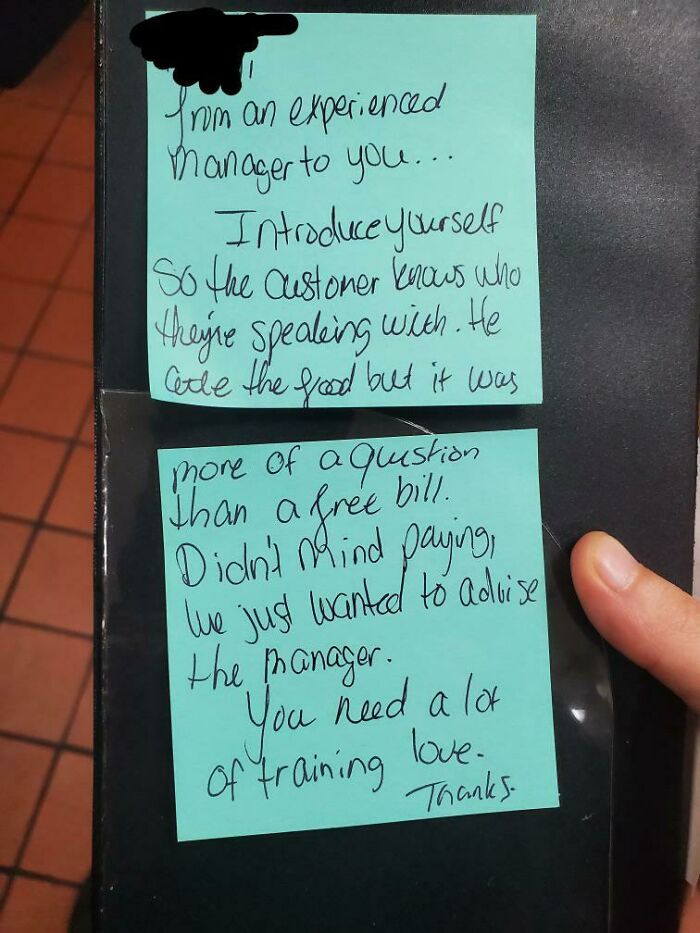 from an experienced
manager to you...
Introduce yourself
So the customer knows who
they're speaking with. He
ate the food but it was
more of a question
than a free bill.
Didn't Mind paying,
we just wanted to advise
the manager.
You need a lot
of training love.
Thanks.